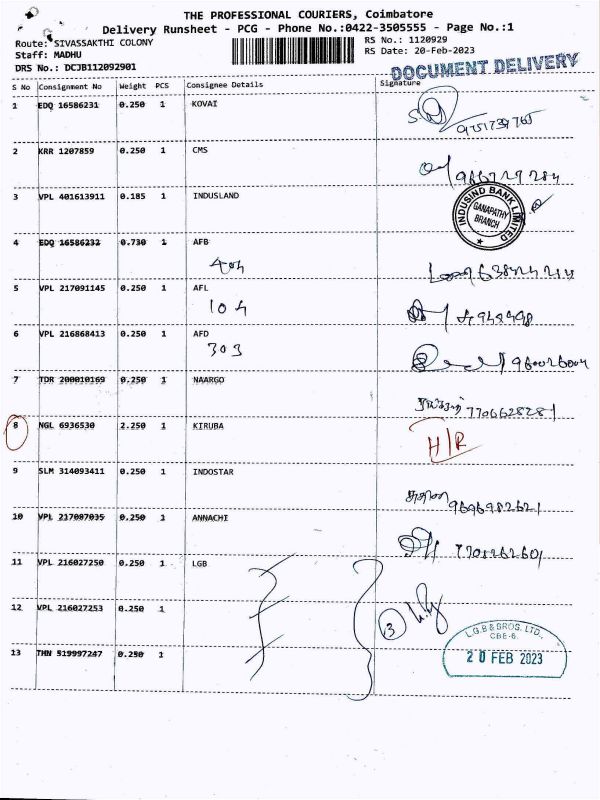 THE PROFESSIONAL COURIERS, Coimbatore
Delivery Runsheet - PCG - Phone No.:0422-3505555 - Page No.:1
Route: SIVASSAKTHI COLONY
RS No.: 1120929
Staff: MADHU
RS Date: 20-Feb-2023
DRS No.: DCJB112092901
DOCUMENT DELIVERY
S No Consignment No Weight PCS Consignee Details Signature
1 EDQ 16586231 0.250 1 KOVAI
2 KRR 1207859 0.250 1 CMS
3 VPL 401613911 0.185 1 INDUSLAND
INDUSIND BANK LIMITED
GANAPATHY
BRANCH
4 EDQ 16586232 0.730 1 AFB
404
5 VPL 217091145 0.250 1 AFL
104
6 VPL 216868413 0.250 1 AFD
303
7 TDR 200010169 0.250 1 NAARGO
7706628281
8 NGL 6936530 2.250 1 KIRUBA
H/R
9 SLM 314093411 0.250 1 INDOSTAR
9696982621
10 VPL 217087035 0.250 1 ANNACHI
11 VPL 216027250 0.250 1 LGB
12 VPL 216027253 0.250 1
3
L.G.B & BROS. LTD.,
CBE-6.
13 THN 519997247 0.250 1
20 FEB 2023